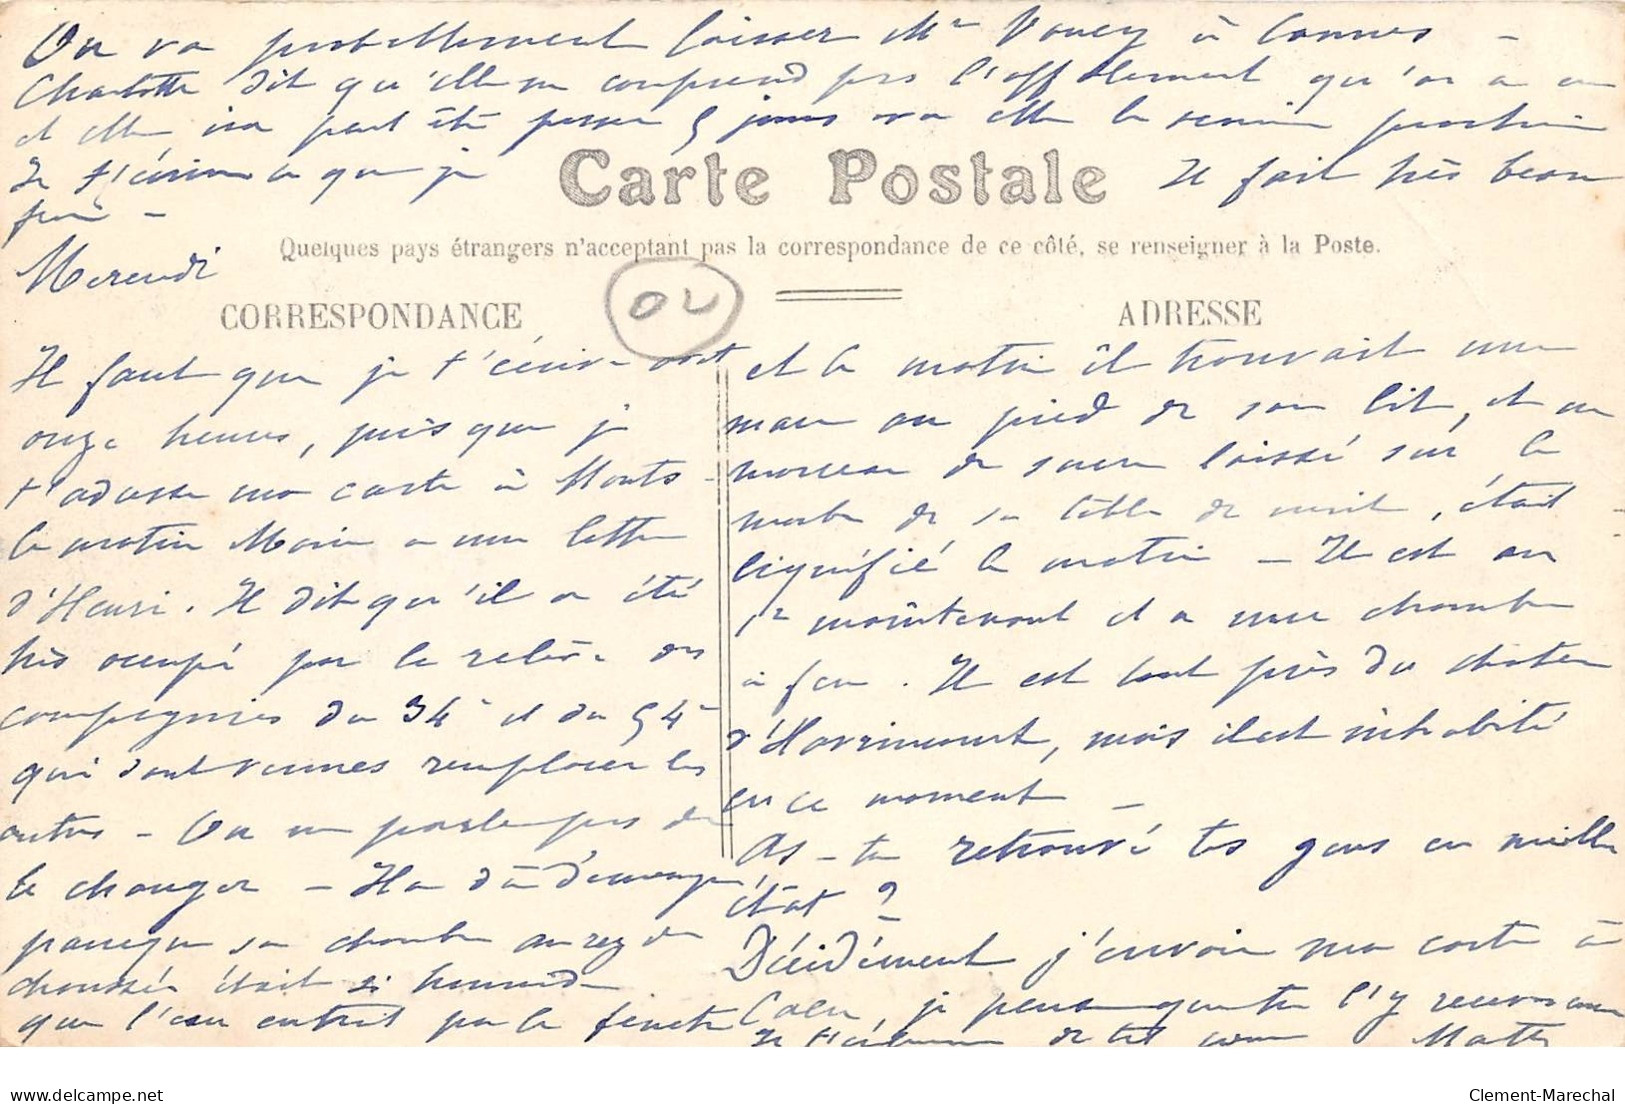 On va probablement laisser Mr Voucy à Cannes -
Charlotte dit qu'elle ne comprend pas l'affolement qu'on a eu
et elle ira peut être passer 5 jours avec elle la semaine prochaine
Je t'écrirai ce que je
Carte Postale
Il fait très beau
ferai -
Quelques pays étrangers n'acceptant pas la correspondance de ce côté, se renseigner à la Poste.
Mercredi
CORRESPONDANCE
Il faut que je t'écrive avt
onze heures, puisque je
t'adresse ma carte à Monts -
Ce matin Marie a une lettre
d'Henri. Il dit qu'il a été
très occupé par la relève des
compagnies du 34e et du 54e
qui sont venues remplacer les
autres - On ne parle pas de
le changer - Il a dû déménager
parceque sa chambre au rez de
chaussée était si humide
que l'eau entrait par la fenêtre
ADRESSE
et le matin il trouvait une
mare au pied de son lit, et un
morceau de sucre laissé sur le
marbre de sa table de nuit, était
liquéfié le matin - Il est au
1er maintenant et a une chambre
à feu. Il est tout près du château
d'Havrincourt, mais il est inhabité
en ce moment -
As-tu retrouvé tes gens en meilleur
état ?
Décidément j'envoie ma carte à
Caen, je pense que tu l'y recevras
Je t'
OL
Clement-Marechal